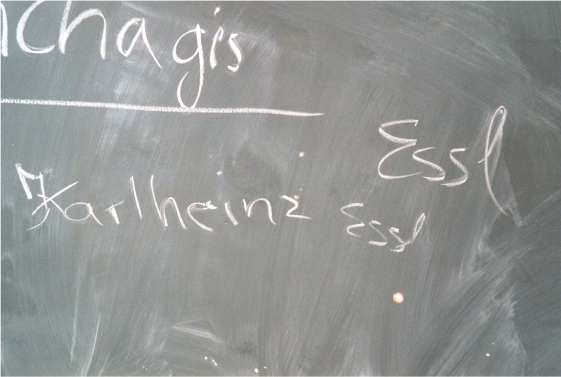 nchagis
Essl
Karlheinz Essl